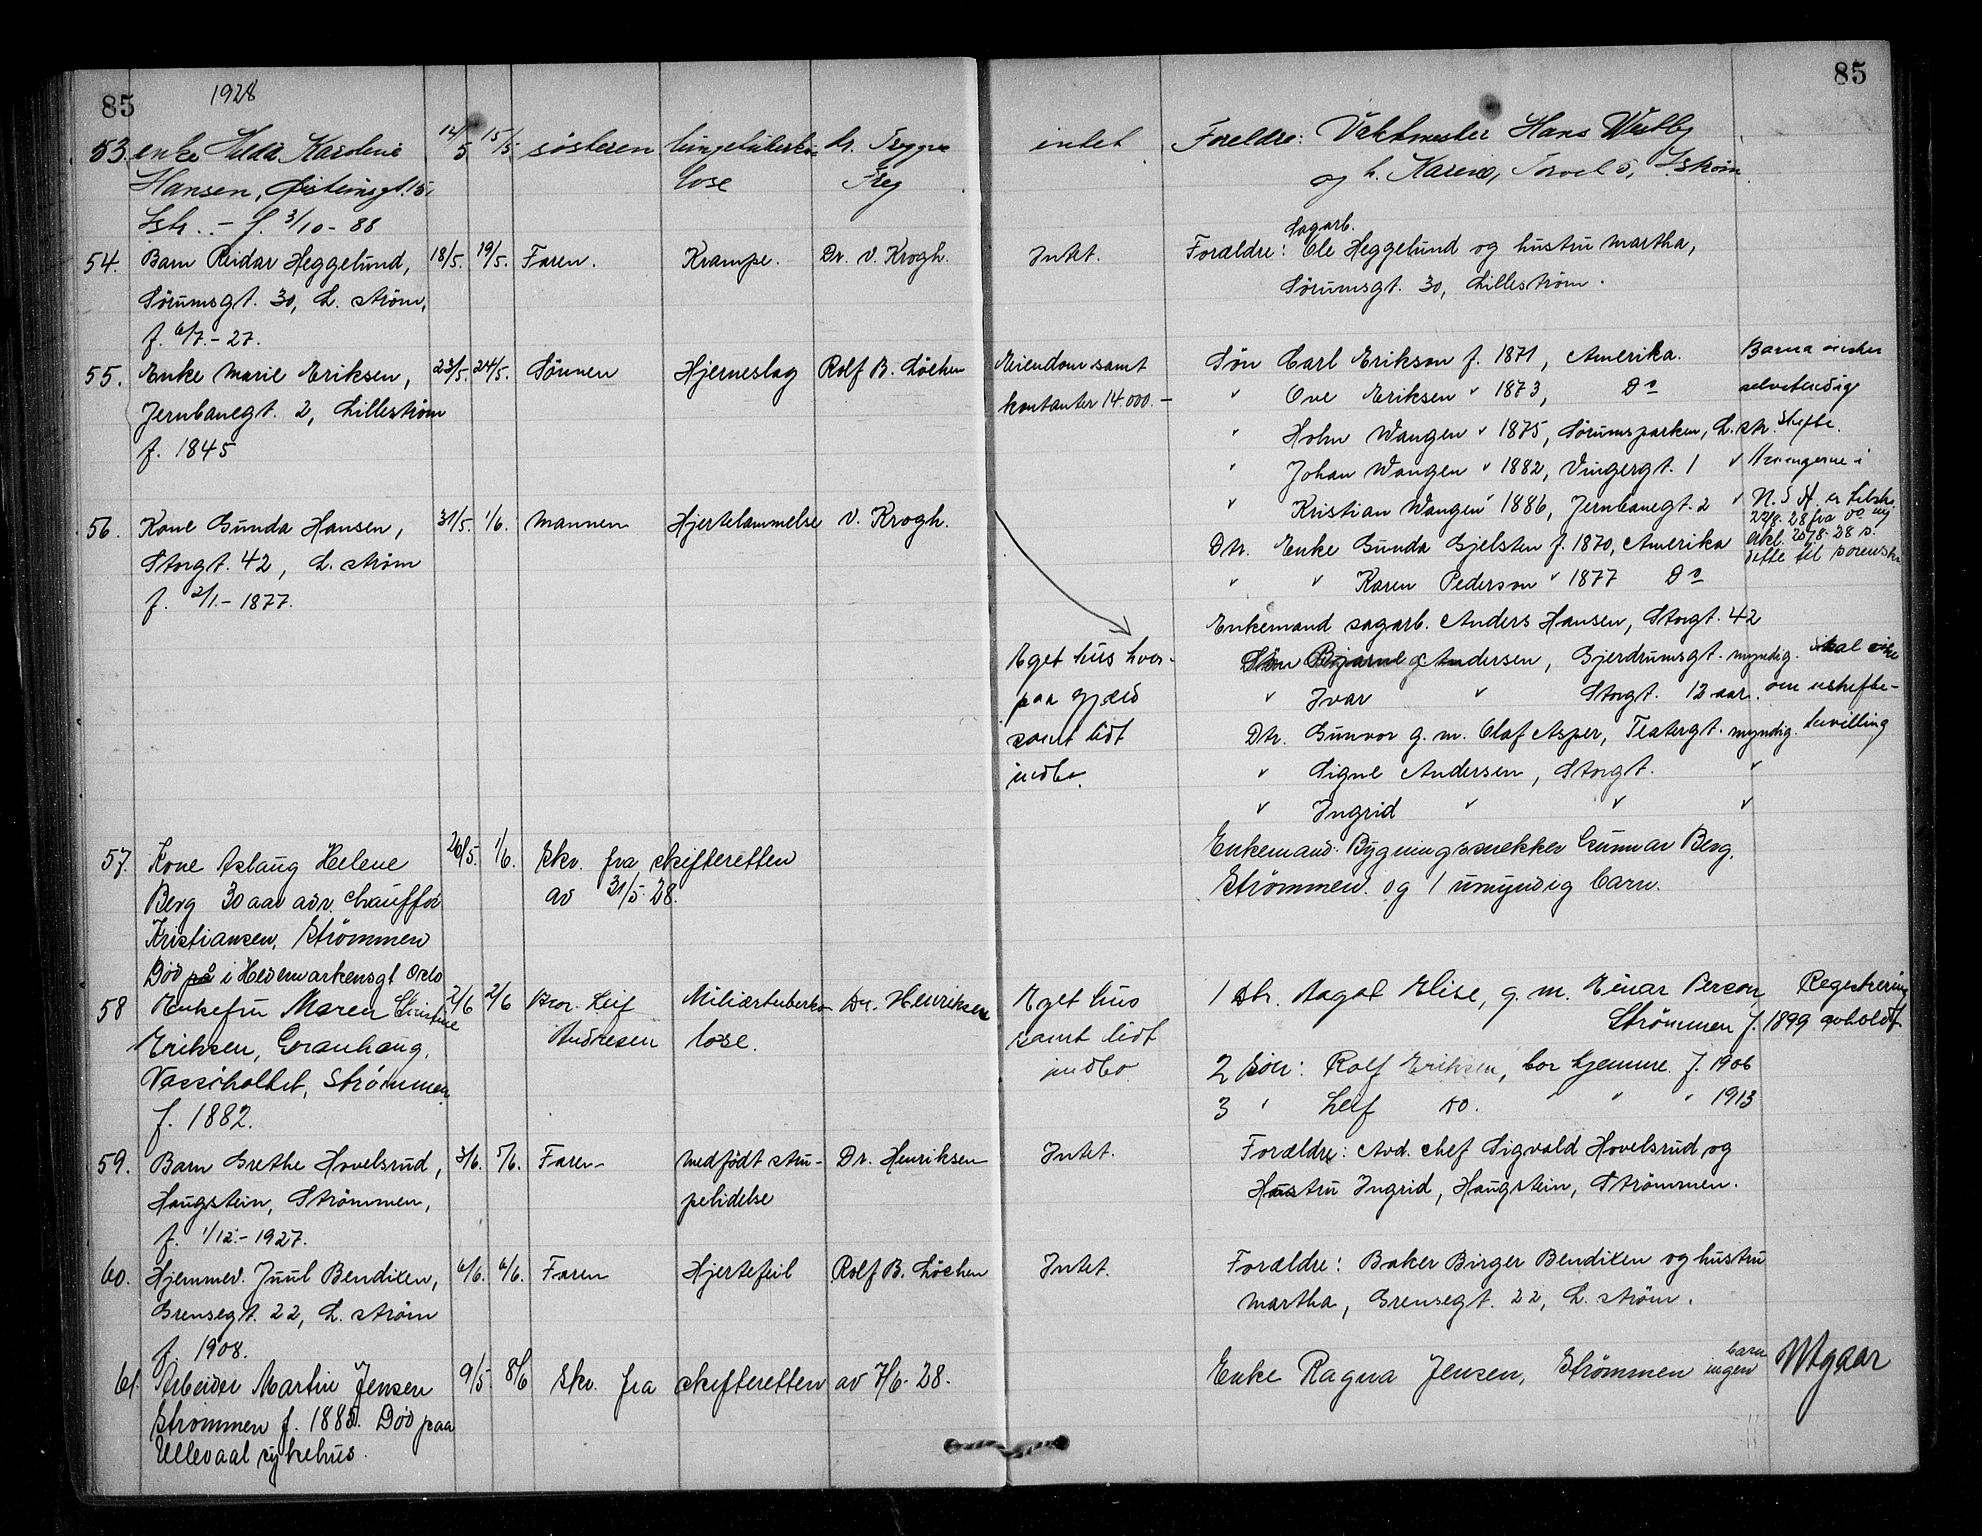 85 1928 85
53. enke Hilda Karoline 14/5 15/5 søsteren lungetuberku- dr. Trygve intet Foreldre: Vaktmester Hans Westby
Hansen, lose og h. Karen, Torvet 5, L.strøm
Lstr. – f. 3/10-88
Sagarb.
54. Barn Reidar Heggelund, 18/5. 19/5. Faren. Krampe. Dr. v. Krogh. Intet. Forældre: Ole Heggelund og hustru Martha,
Sørumsgt. 30, L. strøm, Sørumsgt. 30, Lillestrøm.
f. 6/7.-27.
55. Enke Marie Eriksen, 23/5. 24/5. Sønnen Hjerneslag Rolf B. Löchen Eiendom samt Søn Carl Erikson f. 1871, Amerika. Barna ønsker
Jernbanegt. 2, Lillestrøm kontanter 14.000.– " Ove Eriksen " 1873, Do selvstendig
f. 1845 " Holm Wangen " 1875, Sørumsparken, L. str. skifte.
" Johan Wangen " 1882, Vingergt. 1 "
" Kristian Wangen " 1886, Jernbanegt. 2 "
56. Kone Gunda Hansen, 31/5. 1/6. Mannen Hjertelammelse v. Krogh. Dtr. Enke Gunda Gjelsten f. 1870, Amerika
Storgt. 42, L. strøm " " Karen Pederson " 1877 Do
f. 2/1.-1877.
Enkemand sagarb. Anders Hansen, Storgt. 42
Eget hus hvor- Søn Bjarne Andersen, Gjerdrumsgt. myndig. Skal søke
paa gjæld " Ivar " Storgt. 12 aar. om uskifte-
samt lidt Dtr. Gunvor g. m. Olaf Asper, Teatergt. myndig. bevilling
indbo. " Signe Andersen, Storgt. "
" Ingrid " " "
57. Kone Aslaug Helene 26/5. 1/6. Skr. fra skifteretten Enkemand Bygningssnekker Gunnar Berg,
Berg 30 aar adr. Chauffør av 31/5-28. Strømmen og 1 umyndig barn.
Kristiansen, Strømmen
Død på i Hedemarkensgt Oslo
58 Enkefru Maren Christine 2/6 2/6 Bror. Leif Miliærtuberku- Dr. Henriksen Eget hus 1 dtr. Aagot Elise, g. m. Einar Person Registrering
Eriksen, Granhaug, Andresen lose. samt lidt Strømmen f. 1899 avholdt
Vasshollet, Strømmen indbo. 2 Søn: Rolf Eriksen, bor hjemme f. 1906
f. 1882. 3 " Leif do. " " " 1913
59. Barn Grethe Hovelsrud, 3/6. 5/6. Faren Medfødt stru- Dr. Henriksen Intet. Forældre: Avd. chef Sigvald Hovelsrud og
Haugstein, Strømmen, pelidelse Hustru Ingrid, Haugstein, Strømmen.
f. 1/12.-1927.
60. Hjemmev. Juul Bendixen, 6/6. 6/6. Faren Hjertefeil Rolf B. Löchen Intet. Forældre: Baker Birger Bendixen og hustru
Grensegt. 22, L. strøm Martha, Grensegt. 22, L. strøm.
f. 1908.
61. Arbeider Martin Jensen 9/5. 8/6 Skr. fra skifteretten av 7/6-28. Enke Ragna Jensen, Strømmen ingen barn
Strømmen f. 1885. Død paa
Ullevaal sykehus.